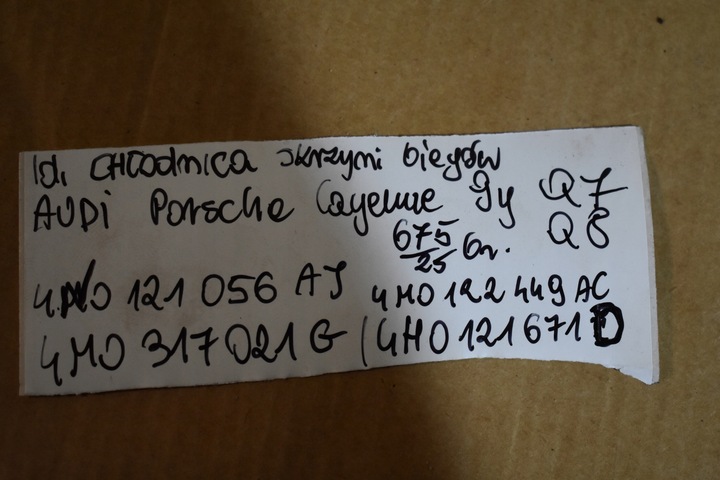 Id. CHŁODNICA skrzyni biegów
AUDI Porsche Cayenne 9y Q7
675/25 6r. Q8
4M0 121 056 AJ 4M0 122 449 AC
4M0 317 021 G / 4M0 121 671 D